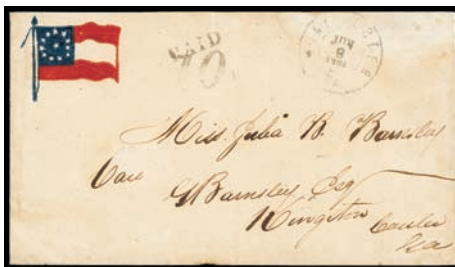 PAID
10
Miss. Julia B. Barnsley
Care
G Barnsley Esq
Kingston
Ga